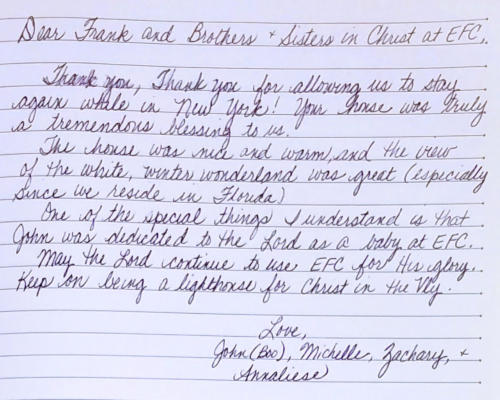 Dear Frank and Brothers + Sisters in Christ at EFC,
Thank you, Thank you for allowing us to stay
again while in New York! Your house was truly
a tremendous blessing to us.
The house was nice and warm, and the view
of the white, winter wonderland was great (especially
since we reside in Florida)
One of the special things I understand is that
John was dedicated to the Lord as a baby at EFC.
May the Lord continue to use EFC for His glory.
Keep on being a lighthouse for Christ in the Vly.
Love,
John (Boo), Michelle, Zachary, +
Annaliese